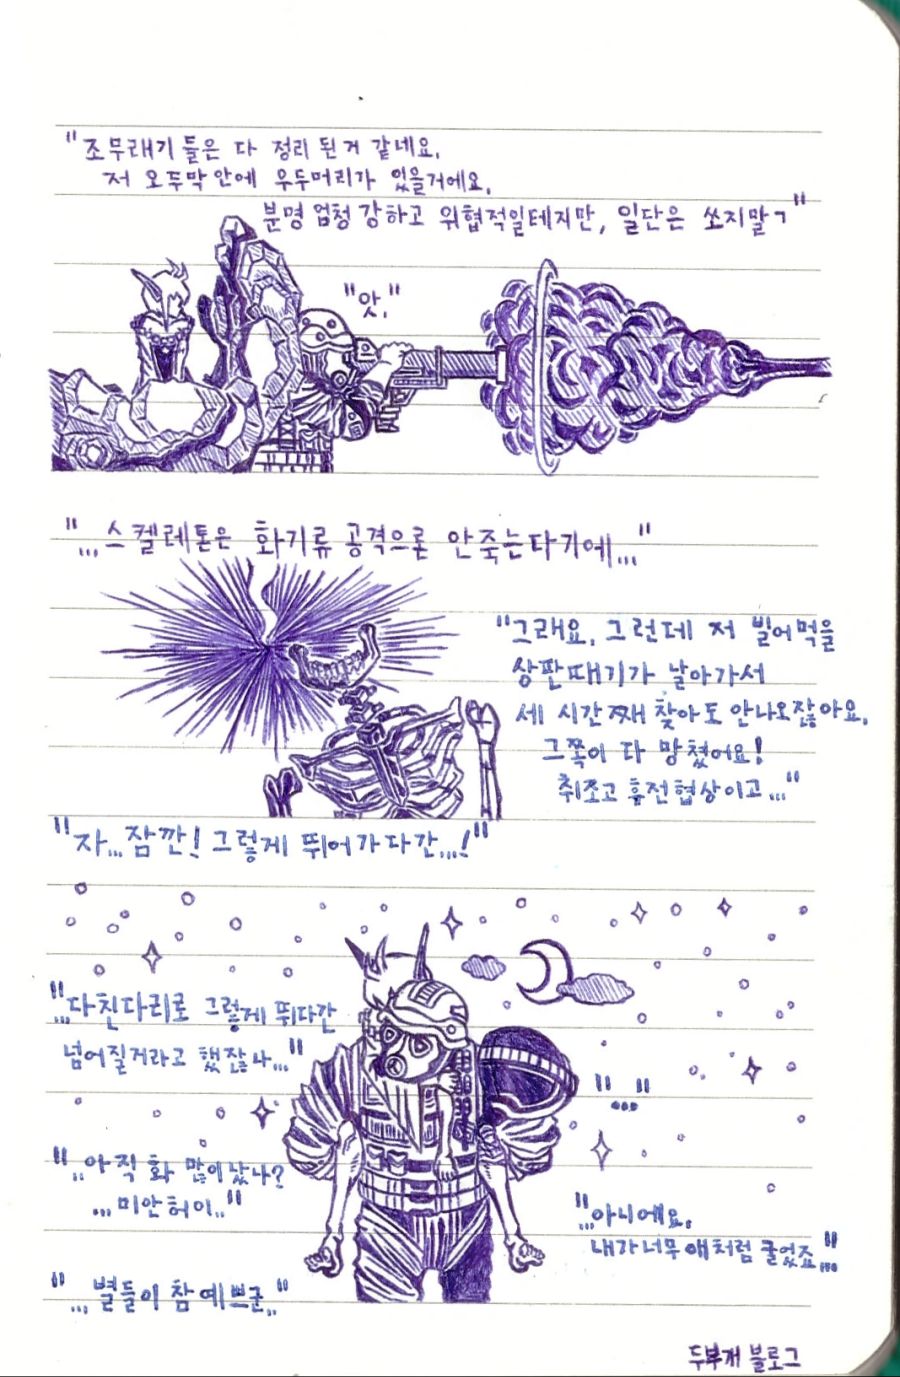 "조무래기 들은 다 정리 된거 같네요.
저 오두막 안에 우두머리가 있을거에요.
분명 엄청 강하고 위협적일테지만, 일단은 쏘지말ㄱ"
"앗."
"...스켈레톤은 화기류 공격으론 안죽는다기에..."
"그래요. 그런데 저 빌어먹을
상판때기가 날아가서
세 시간째 찾아도 안나오잖아요.
그쪽이 다 망쳤어요!
취조고 휴전협상이고..."
"자...잠깐! 그렇게 뛰어가다간...!"
"...다친다리로 그렇게 뛰다간
넘어질거라고 했잖나..."
"..."
"..아직 화 많이났나?
...미안허이.."
"...아니에요.
내가너무 애처럼 굴었죠..."
"...별들이 참 예쁘군.."
두부개 블로그